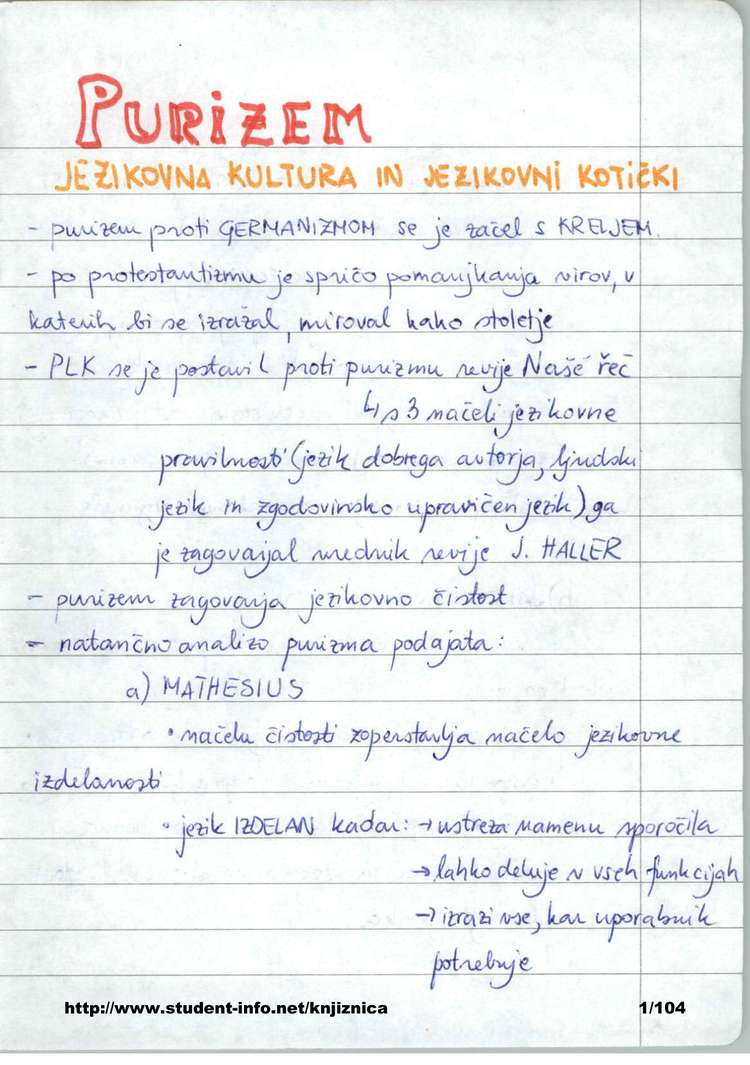 PURIZEM
JEZIKOVNA KULTURA IN JEZIKOVNI KOTIČKI
- purizem proti GERMANIZMOM se je začel s KRELJEM.
- po protestantizmu je spričo pomanjkanja virov, v
katerih bi se izražal, miroval kako stoletje
- PLK se je postavil proti purizmu revije Naše řeč
↳ s 3 načeli jezikovne
pravilnosti (jezik dobrega avtorja, ljudski
jezik in zgodovinsko upravičen jezik) ga
je zagovarjal urednik revije J. HALLER
- purizem zagovarja jezikovno čistost
- natančno analizo purizma podajata:
a) MATHESIUS
• načelu čistosti zoperstavlja načelo jezikovne
izdelanosti
• jezik IZDELAN kadar: → ustreza namenu sporočila
→ lahko deluje v vseh funkcijah
→ izrazi vse, kar uporabnik
potrebuje
http://www.student-info.net/knjiznica 1/104